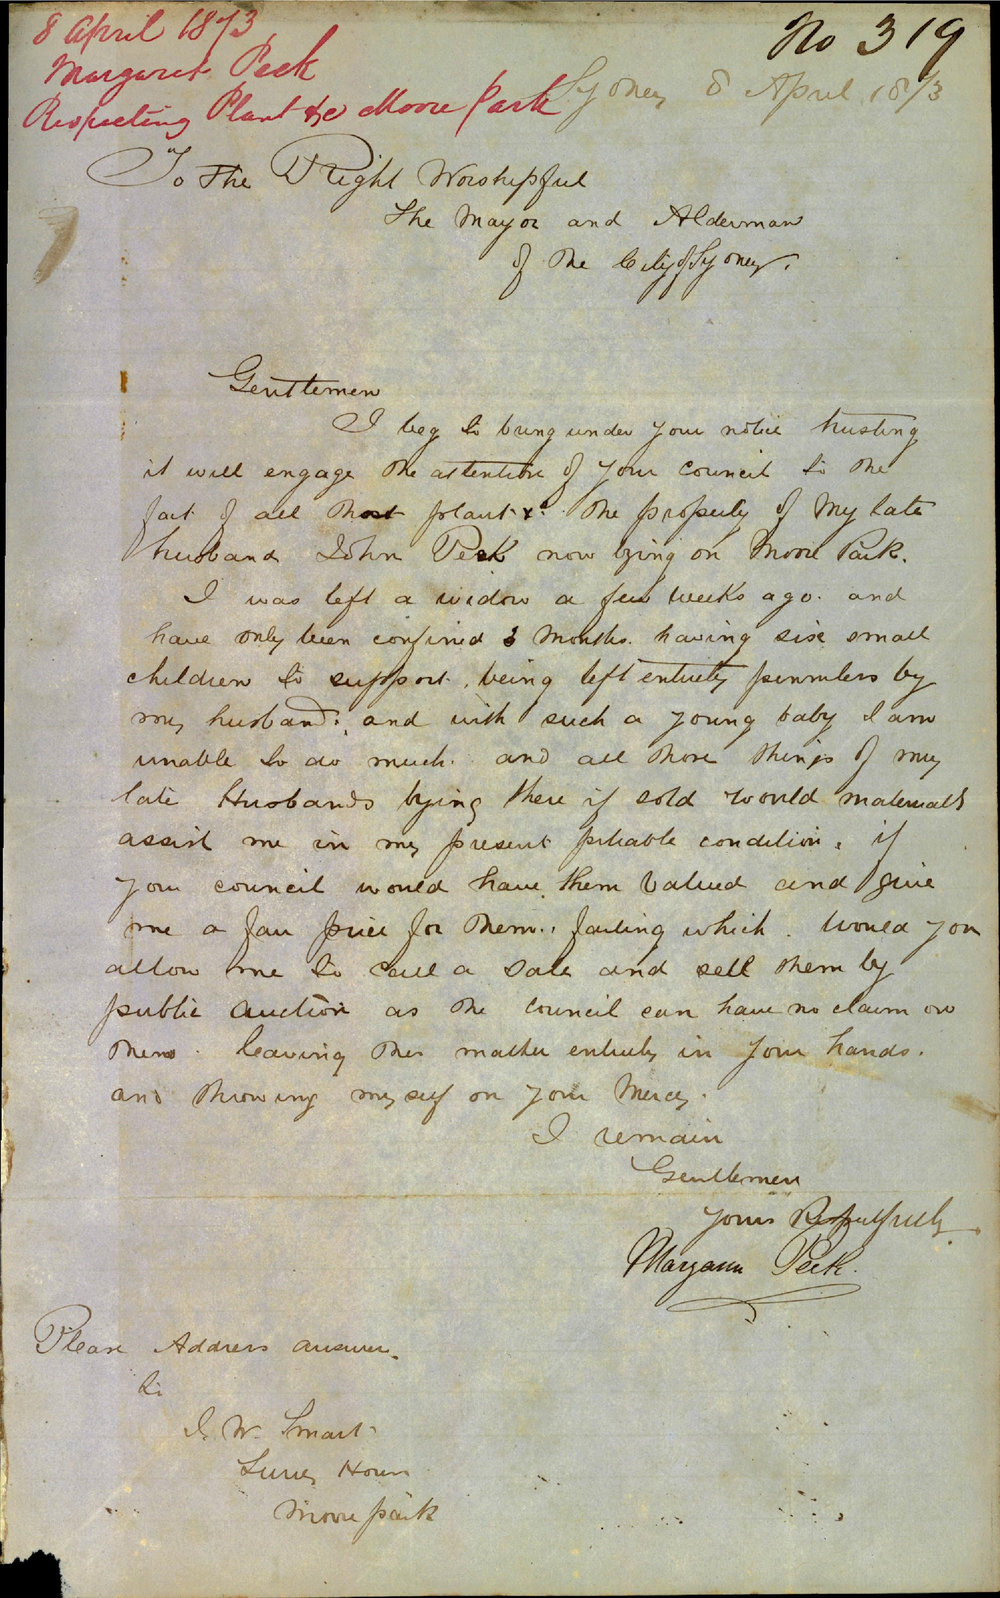 8 April 1873
Margaret Peek
Respecting Plant &c Moore Park
No 319
Sydney 8 April 1873
To The Right Worshipful
The Mayor and Alderman
of the City of Sydney.
Gentlemen
I beg to bring under your notice trusting
it will engage the attention of your council to the
fact of all that plant &c. the property of my late
husband John Peek now lying on Moore Park.
I was left a widow a few weeks ago. and
have only been confined 3 months. having six small
children to support. being left entirely pennyless by
my husband; and with such a young baby I am
unable to do much. and all those things of my
late Husbands lying there if sold would materially
assist me in my present pitiable condition. if
your council would have them valued and give
me a fair price for them.. failing which. Would you
allow me to call a sale and sell them by
public auction as the council can have no claim on
them. leaving the matter entirely in your hands.
and throwing myself on your Mercy.
I remain
Gentlemen
yours Respectfully
Maryann Peek.
Please Address answer
to
J. W. Smart
Surrey House
Moore park